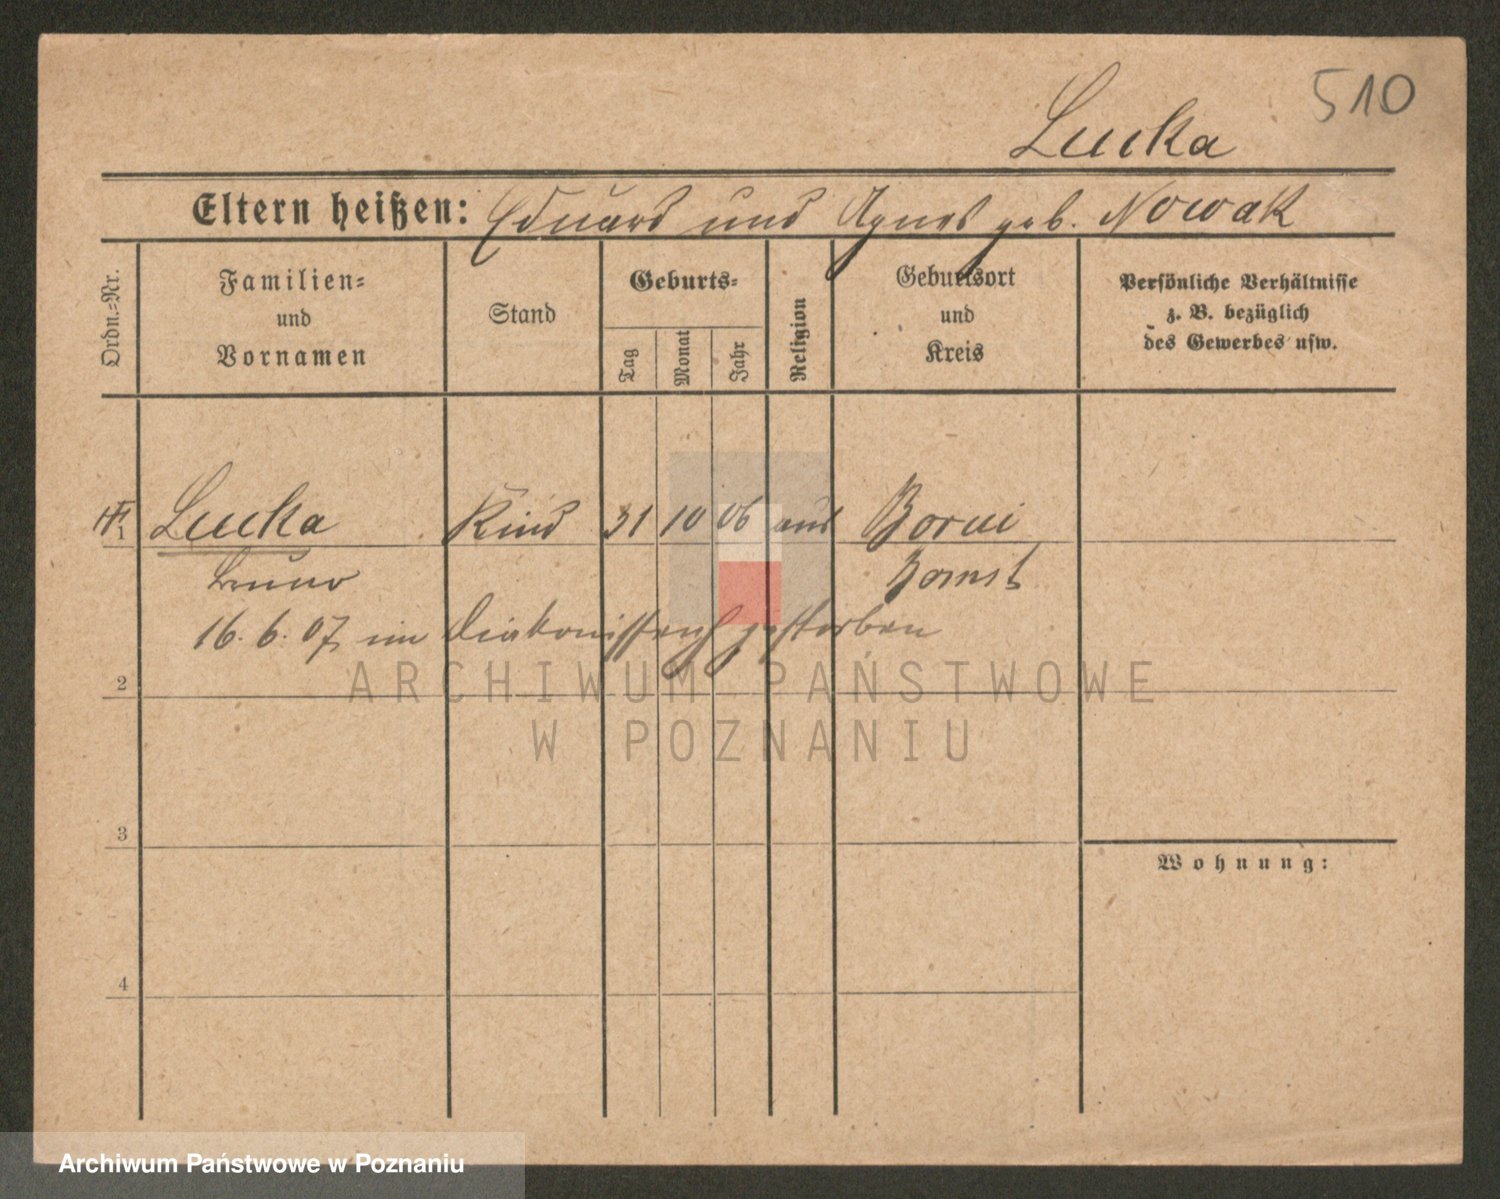 510
Lucka
Eltern heißen: Eduard und Agnes geb. Nowak
Ordn.=Nr.
Familien=
und
Vornamen
Stand
Geburts=
Tag
Monat
Jahr
Religion
Geburtsort
und
Kreis
Persönliche Verhältnisse
z. B. bezüglich
des Gewerbes usw.
1 Lucka Kind 31 10 06 Borui
Bruno Bomst
16. 6. 07 im gestorben
2
3
Wohnung:
4
ARCHIWUM PAŃSTWOWE
W POZNANIU
Archiwum Państwowe w Poznaniu